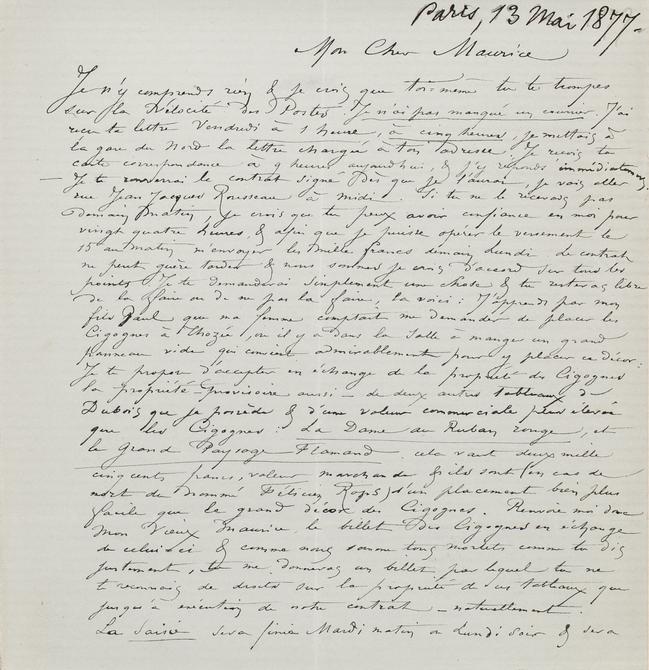 Paris, 13 Mai 1877.
Mon Cher Maurice
Je n'y comprends rien & je crois que toi-même tu te trompes
sur la Vélocité des Postes. Je n'ai pas manqué un courrier. J'ai
reçu ta lettre Vendredi à 1 heure, à cinq heures, je mettais à
la gare du Nord la lettre chargée à ton adresse. Je reçois ta
carte correspondance à 9 heures aujourd'hui, & j'y réponds immédiatement.
— Je te renverrai le contrat signé dès que je l'aurai, je vais aller
rue Jean Jacques Rousseau à midi. Si tu ne le recevais pas
demain matin, je crois que tu peux avoir confiance en moi pour
vingt quatre heures, & afin que je puisse opérer le versement le
15 au matin m'envoyer les mille francs demain Lundi, le contrat
ne peut guère tarder & nous sommes je crois d'accord sur tous les
points. Je te demanderai simplement une chose & tu resteras libre
de la faire ou de ne pas la faire, la voici : J'apprends par mon
fils Paul que ma femme comptait me demander de placer les
Cigognes à Thozée, où il y a dans la Salle à manger un grand
panneau vide qui convient admirablement pour y placer ce décor :
Je te propose d'accepter en échange de la propriété des Cigognes
la propriété - provisoire aussi - de deux autres tableaux de
Dubois que je possède & d'une valeur commerciale plus élevée
que les Cigognes : La Dame au Ruban rouge, et
le Grand Paysage Flamand. cela vaut deux mille
cinq cents francs, valeur marchande & ils sont (en cas de
mort du nommé Félicien Rops) d'un placement bien plus
facile que le grand décor des Cigognes. Renvoie moi donc
mon Vieux Maurice le billet des Cigognes en échange
de celui-ci & comme nous sommes tous mortels comme tu dis
justement, tu me donneras un billet par lequel tu ne
te reconnais de droits sur la propriété de ces tableaux que
jusqu'à exécution de notre contrat - naturellement.
La Saisie sera finie Mardi matin ou Lundi Soir & sera